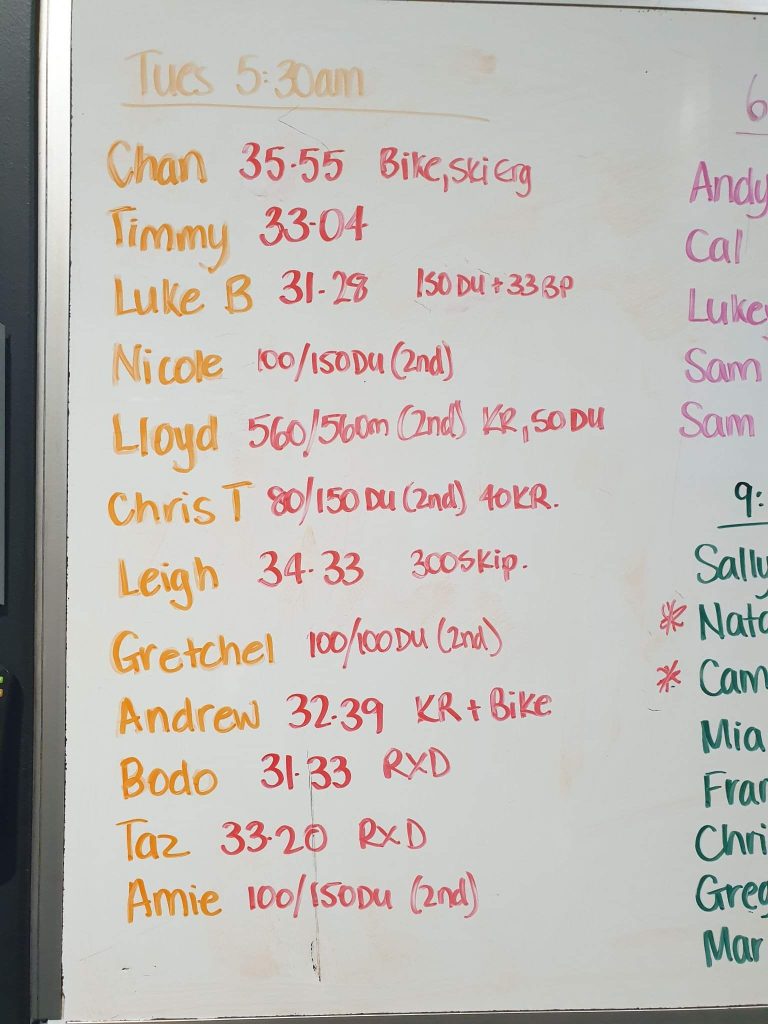 Tues 5:30am
Chan 35.55 Bike, Ski Erg
Timmy 33.04
Luke B 31.28 150 DU + 33 BP
Nicole 100/150DU (2nd)
Lloyd 560/560m (2nd) KR, 50 DU
Chris T 80/150 DU (2nd) 40KR.
Leigh 34.33 300skip.
Gretchel 100/100DU (2nd)
Andrew 32.39 KR + Bike
Bodo 31.33 RXD
Taz 33.20 RXD
Amie 100/150DU (2nd)
6
Andy
Cal
Lukey
Sam
Sam
9:
Sally
* Nata
* Cam
Mia
Fran
Chri
Greg
Mar